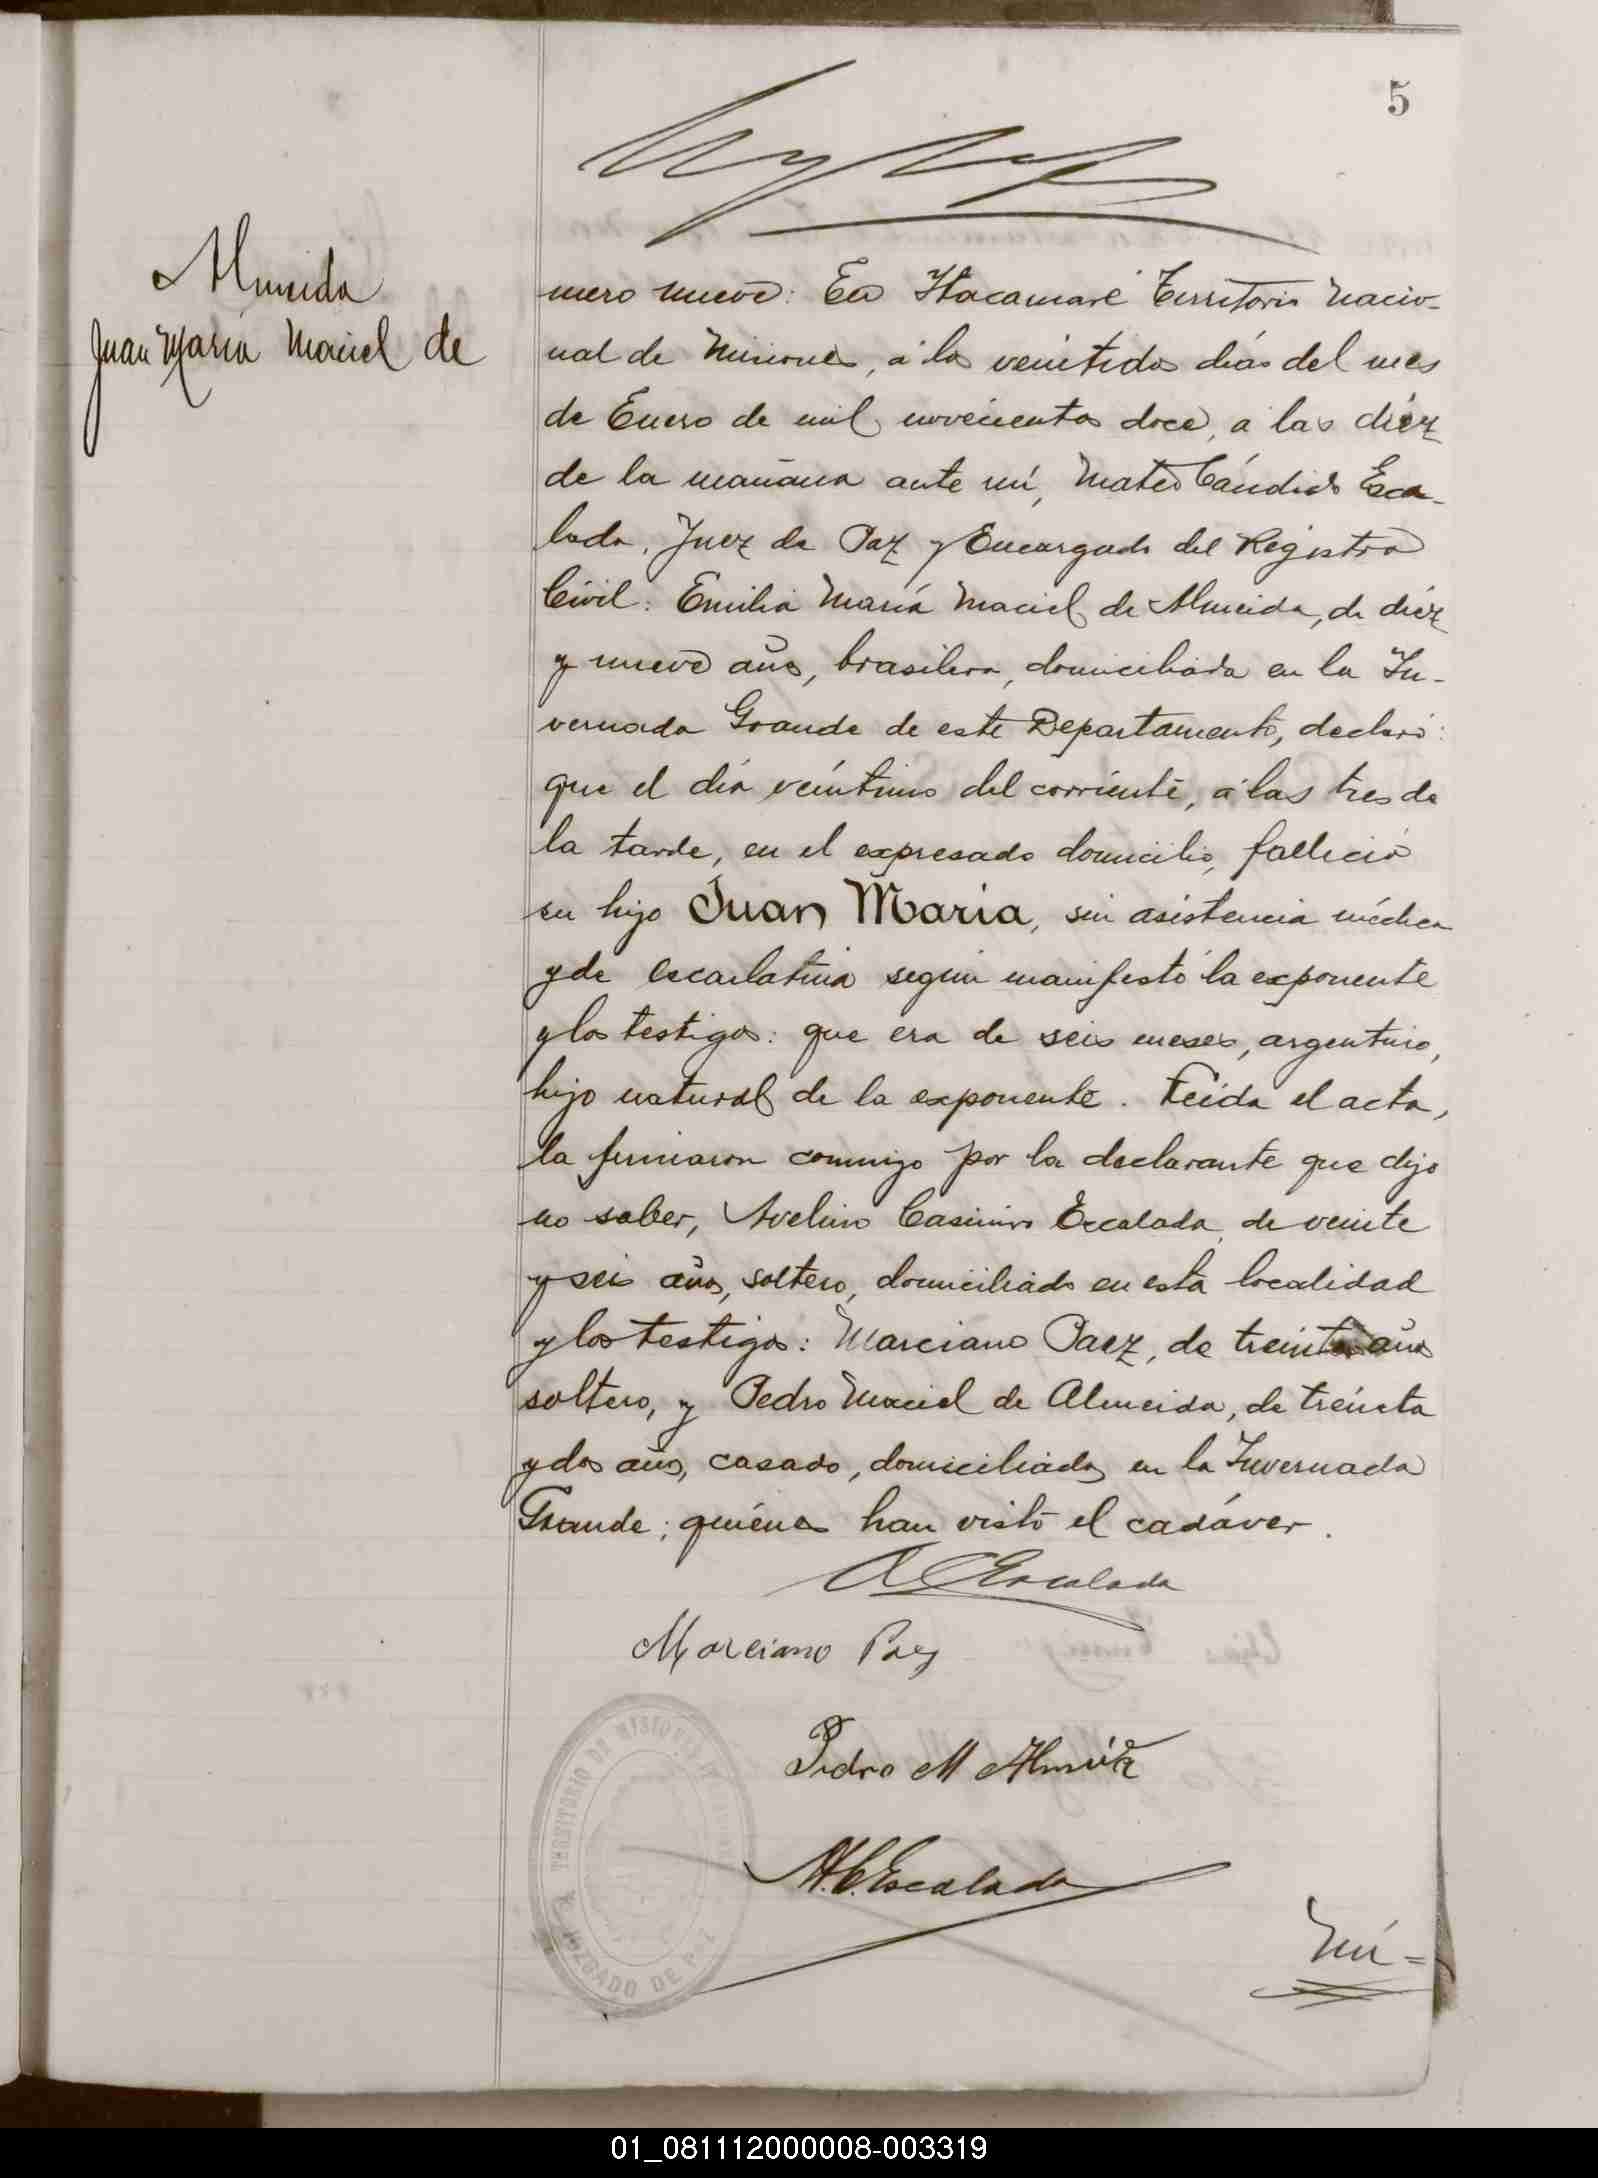 5
Almeida
Juan María Maciel de
mero nueve: En Itacaruaré Territorio Nacio-
nal de Misiones, á los veintidos días del mes
de Enero de mil novecientos doce, á las diéz
de la mañana ante mí, Mateo Cándido Esca-
lada, Juez de Paz y Encargado del Registro
Civil: Emilia María Maciel de Almeida, de diéz
y nueve años, brasilera, domiciliada en la In-
vernada Grande de este Departamento, declaró:
que el día veintiuno del corriente, á las tres de
la tarde, en el expresado domicilio, falleció
su hijo Juan Maria, sin asistencia médica
y de escarlatina según manifestó la exponente
y los testigos: que era de seis meses, argentino,
hijo natural de la exponente. Leida el acta,
la firmaron conmigo por la declarante que dijo
no saber, Avelino Casimiro Escalada, de veinte
y seis años, soltero, domiciliado en esta localidad
y los testigos: Marciano Paez, de treinta años
soltero, y Pedro Maciel de Almeida, de treinta
y dos años, casado, domiciliados en la Invernada
Grande; quiénes han visto el cadáver.
A C Escalada
Marciano Paez
Pedro M Almeida
M. C. Escalada
TERRITORIO DE MISIONES
JUZGADO DE PAZ
Nú=
01_081112000008-003319